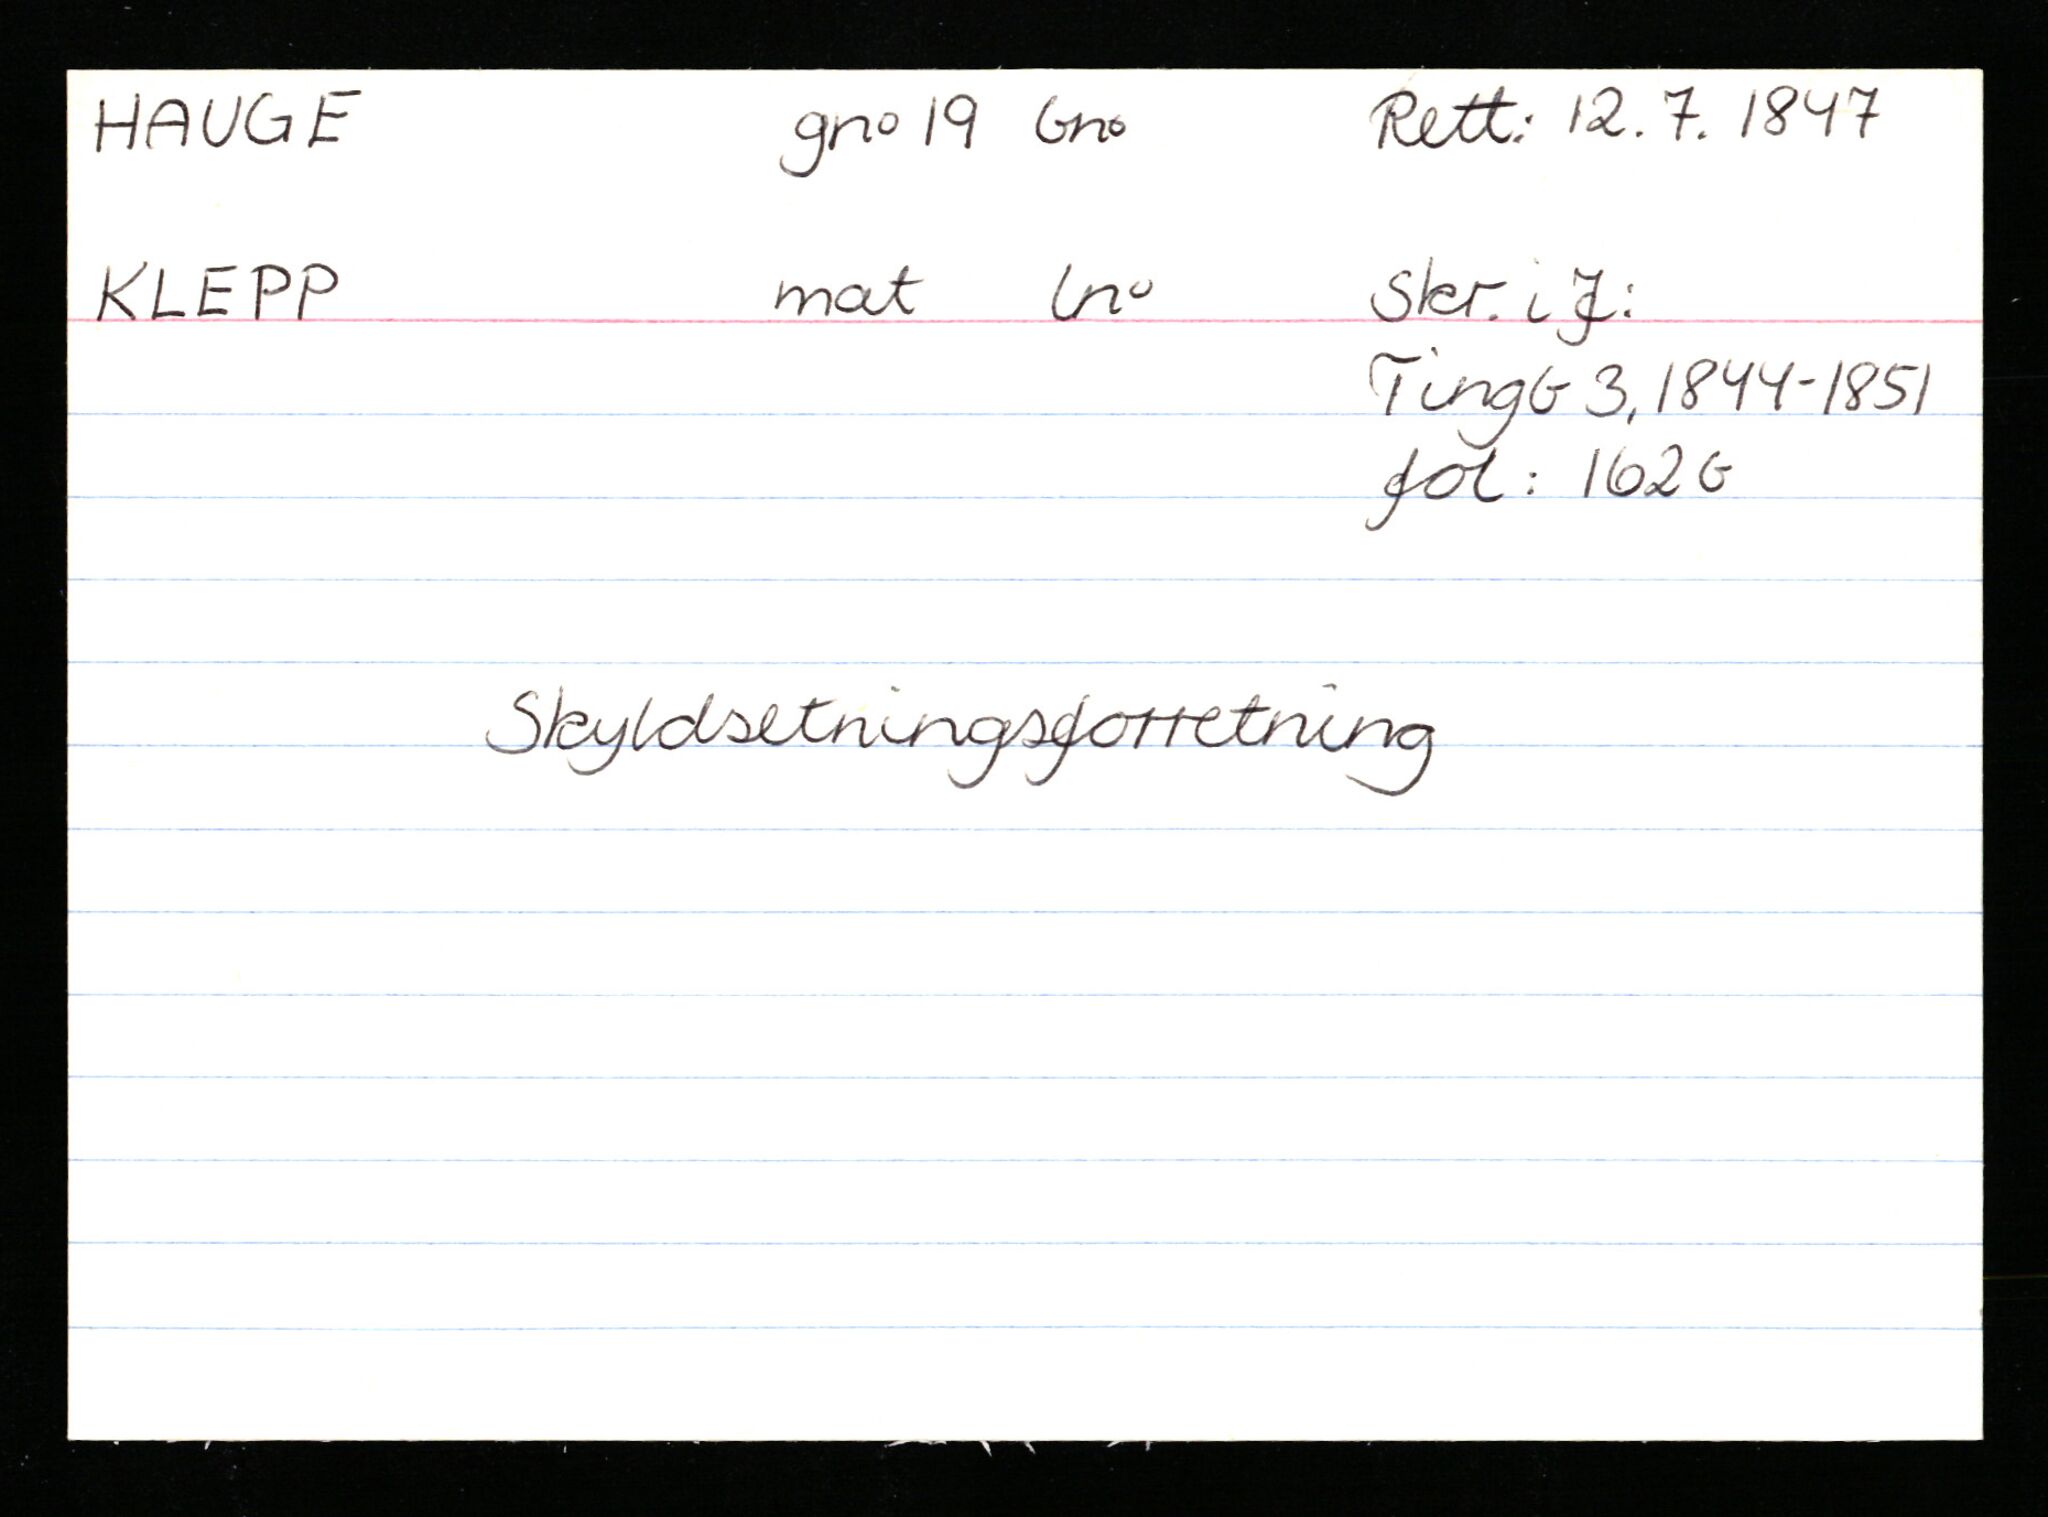 HAUGE gno 19 bno Rett: 12.7.1847
KLEPP mat lno Skr. i J:
Tingb 3, 1844-1851
fol: 162b
Skyldsetningsforretning